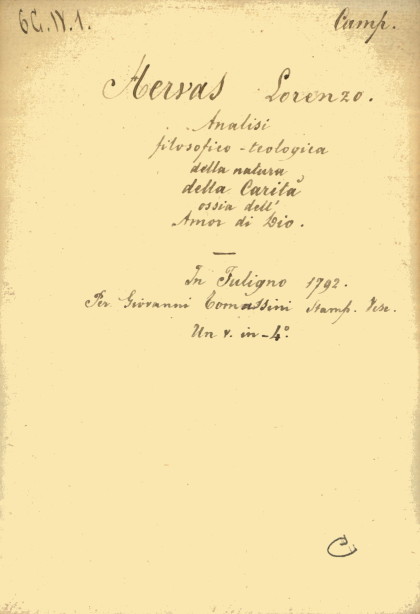 6G.IV.1. Camp.
Hervas Lorenzo.
Analisi
filosofico-teologica
della natura
della Carità
ossia dell'
Amor di Dio.
In Fuligno 1792.
Per Giovanni Tomassini Stamp. Vesc.
Un v. in-4º.